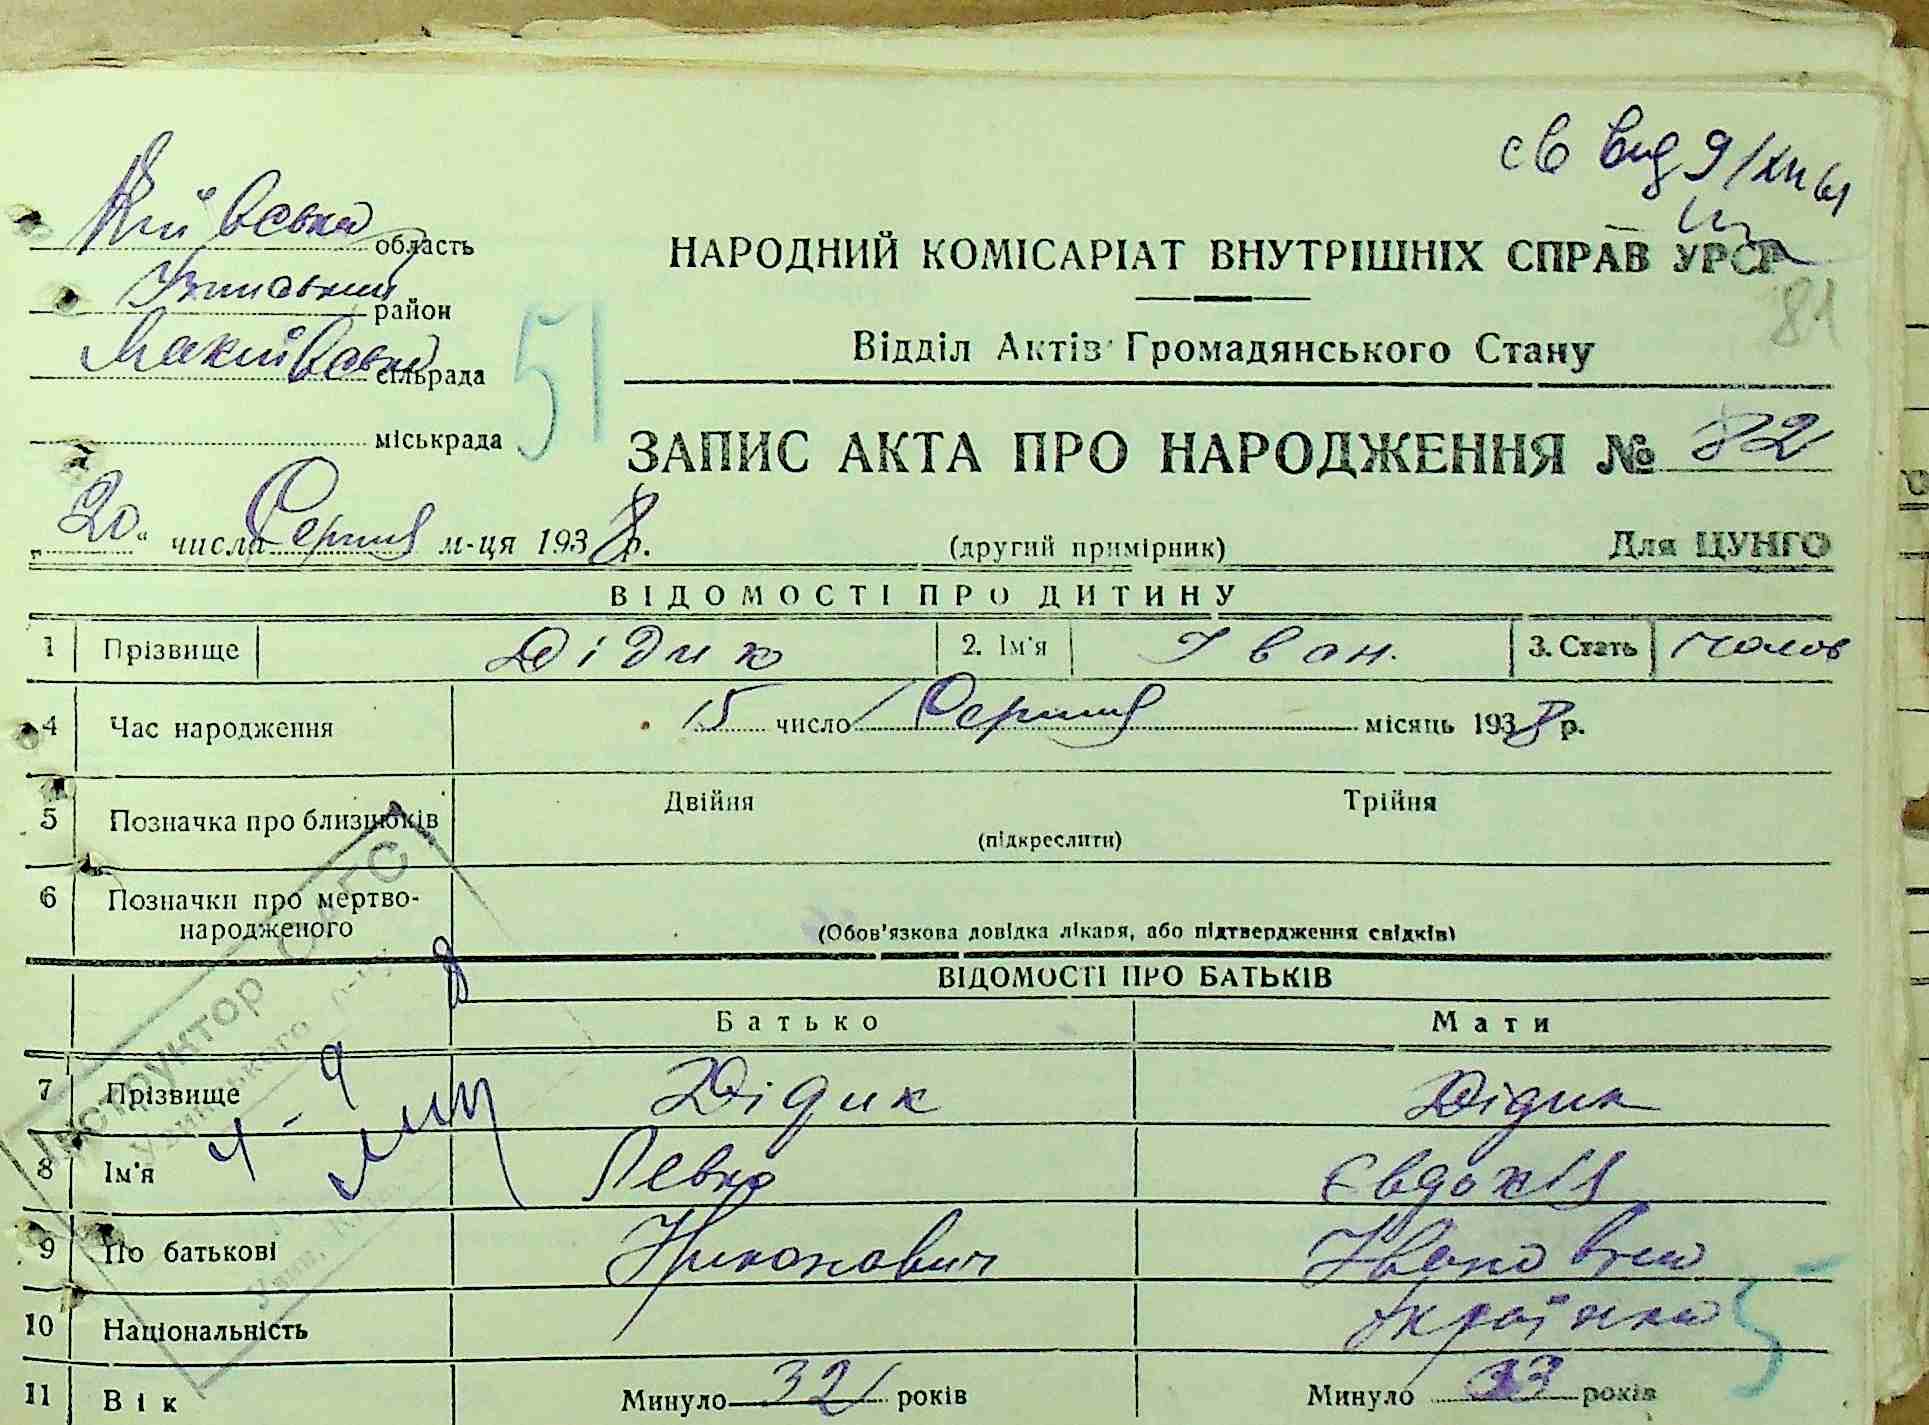 св вид 9/XII 61
Київська область
район
сільрада
міськрада
51
НАРОДНИЙ КОМІСАРІАТ ВНУТРІШНІХ СПРАВ УРСР
81
Відділ Актів Громадянського Стану
ЗАПИС АКТА ПРО НАРОДЖЕННЯ № 32
„20“ числа Серпня м-ця 1938 р.
(другий примірник)
Для ЦУНГО
ВІДОМОСТІ ПРО ДИТИНУ
1 Прізвище Дідик 2. Ім'я Іван. 3. Стать чолов
4 Час народження 15 число Серпня місяць 1938 р.
5 Позначка про близнюків Двійня Трійня
(підкреслити)
6 Позначки про мертво-
народженого
(Обов'язкова довідка лікаря, або підтвердження свідків)
ВІДОМОСТІ ПРО БАТЬКІВ
Батько Мати
7 Прізвище Дідик Дідик
8 Ім'я Левко Євдокія
9 По батькові Никонович Івановна
10 Національність Українка
11 Вік Минуло 32 років Минуло 33 років
Інструктор ОАГС